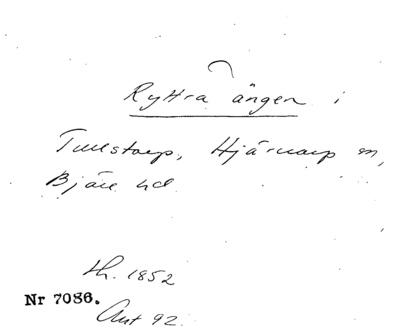 Ryttra ängen i
Tullstorp, Hjärnarp sn,
Bjäre hd
lh. 1852
Nr 7086.
Ant 92.